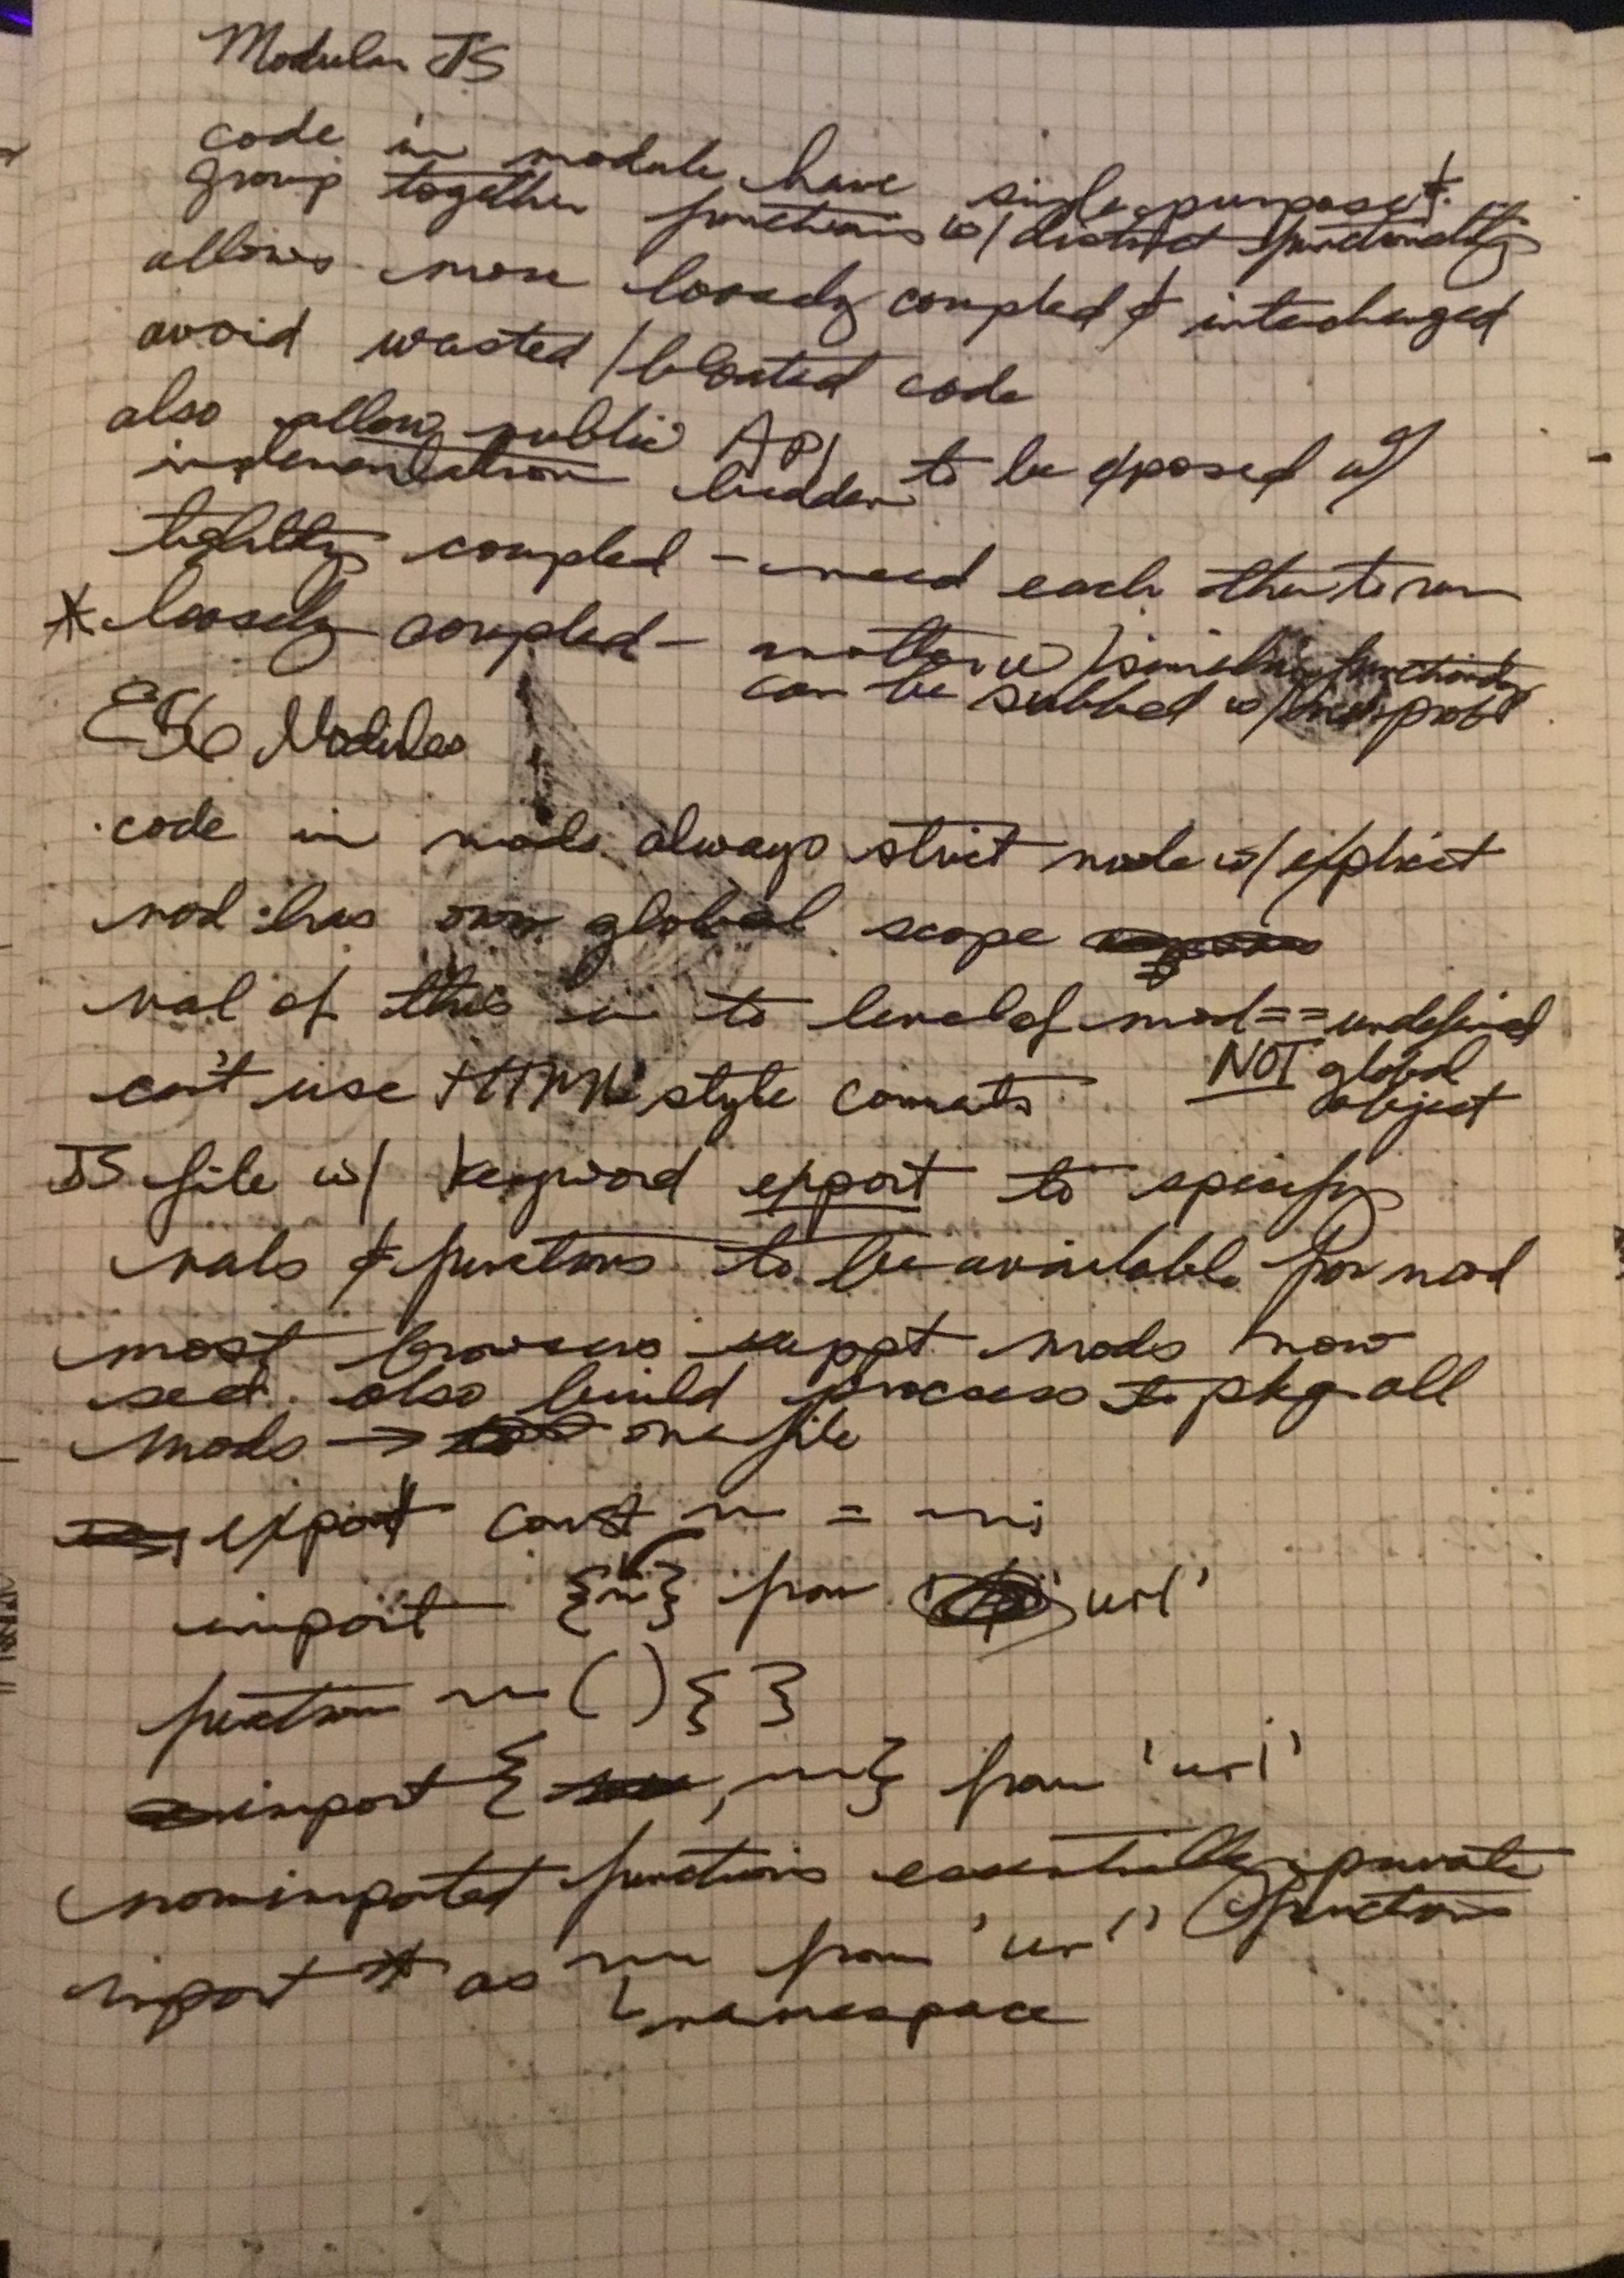 Modular JS
code in module have single purpose &
group together functions w/ distinct functionality
allows more loosely coupled & interchanged
avoid wasted / bloated code
also allow public API to be exposed w/
implementation hidden
tightly coupled - need each other to run
* loosely coupled - another w/ similar functionality
can be subbed w/
ES6 Modules
code in mods always strict mode w/ explicit
mod has own global scope
val of this in to level of mod == undefined
NOT global
object
can't use HTML style coments
JS file w/ keyword export to specify
vals & functions to be available for mod
most browsers suppt mods now
also build process to pkg all
mods → one file
export const ~ = ~;
import {~} from 'url'
function ~ () { }
import { , ~} from 'url'
nonimported functions essentially private
functions
import * as ~ from 'url'
namespace